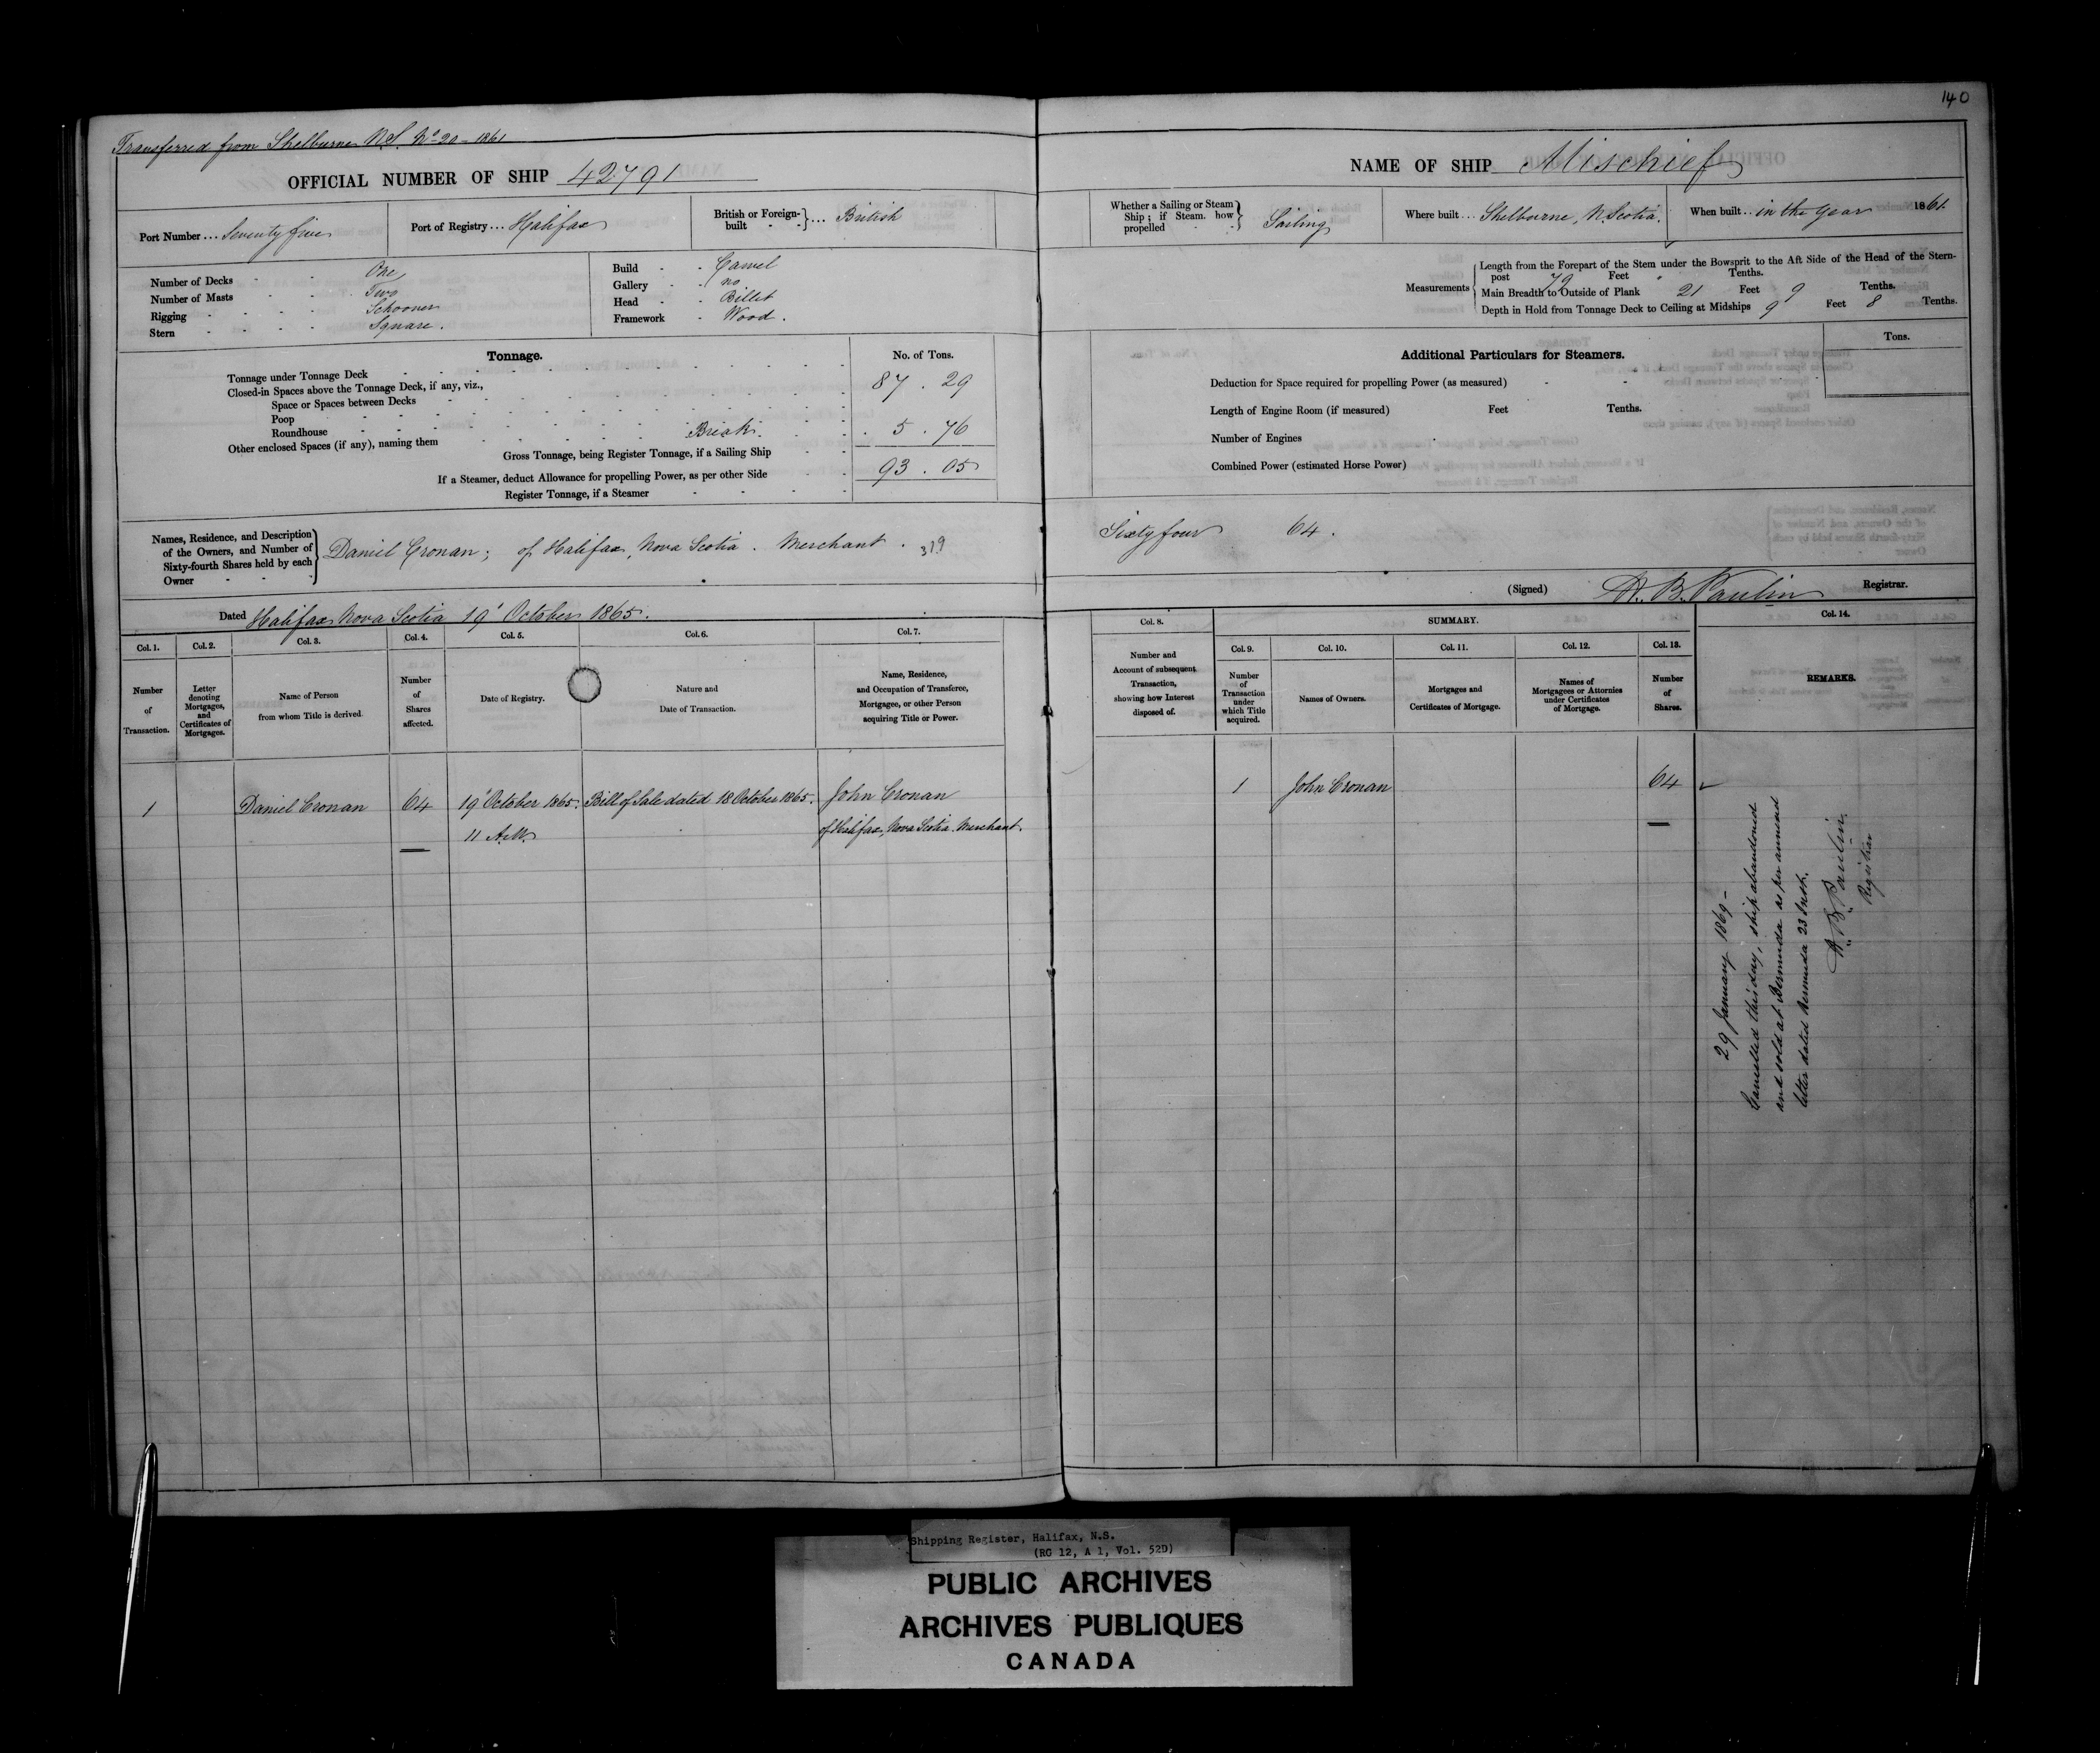 140
Transferred from Shelburne N.S. No 20 - 1861
OFFICIAL NUMBER OF SHIP 42791
Port Number ... Seventy five
Port of Registry ... Halifax
British or Foreign-built } ... British
Number of Decks - - One
Number of Masts - - Two
Rigging - - - - Schooner
Stern - - - - Square.
Build - - Carvel
Gallery - - no
Head - - Billet
Framework - Wood.
Tonnage.
No. of Tons.
Tonnage under Tonnage Deck 87 . 29
Closed-in Spaces above the Tonnage Deck, if any, viz.,
Space or Spaces between Decks
Poop
Roundhouse
Other enclosed Spaces (if any), naming them Break. 5 . 76
Gross Tonnage, being Register Tonnage, if a Sailing Ship 93 . 05
If a Steamer, deduct Allowance for propelling Power, as per other Side
Register Tonnage, if a Steamer
Names, Residence, and Description
of the Owners, and Number of
Sixty-fourth Shares held by each
Owner
Daniel Cronan; of Halifax, Nova Scotia. Merchant. 319
Dated Halifax Nova Scotia 19' October 1865.
Col. 1.
Number
of
Transaction.
Col. 2.
Letter
denoting
Mortgages,
and
Certificates of
Mortgages.
Col. 3.
Name of Person
from whom Title is derived.
Col. 4.
Number
of
Shares
affected.
Col. 5.
Date of Registry.
Col. 6.
Nature and
Date of Transaction.
Col. 7.
Name, Residence,
and Occupation of Transferee,
Mortgagee, or other Person
acquiring Title or Power.
1 Daniel Cronan 64 19' October 1865. Bill of Sale dated 18 October 1865. John Cronan
11 A.M. of Halifax, Nova Scotia. Merchant.
NAME OF SHIP Mischief
Whether a Sailing or Steam
Ship; if Steam. how
propelled
Sailing
Where built ... Shelburne, N. Scotia.
When built .. in the year 1861.
Measurements
Length from the Forepart of the Stem under the Bowsprit to the Aft Side of the Head of the Stern-
post 79 Feet " Tenths.
Main Breadth to Outside of Plank 21 Feet 9 Tenths.
Depth in Hold from Tonnage Deck to Ceiling at Midships 9 Feet 8 Tenths.
Additional Particulars for Steamers.
Tons.
Deduction for Space required for propelling Power (as measured)
Length of Engine Room (if measured) Feet Tenths.
Number of Engines
Combined Power (estimated Horse Power)
Sixty four 64.
(Signed) H. B. Paulin Registrar.
Col. 8.
Number and
Account of subsequent
Transaction,
showing how Interest
disposed of.
SUMMARY.
Col. 9.
Number
of
Transaction
under
which Title
acquired.
Col. 10.
Names of Owners.
Col. 11.
Mortgages and
Certificates of Mortgage.
Col. 12.
Names of
Mortgagees or Attornies
under Certificates
of Mortgage.
Col. 13.
Number
of
Shares.
Col. 14.
REMARKS.
1 John Cronan 64
29 January 1869 -
Cancelled this day, ship abandoned
and sold at Bermuda as per annexed
letter dated Bermuda 23 Inst.
H B Paulin
Registrar
Shipping Register, Halifax, N.S.
(RG 12, A 1, Vol. 52D)
PUBLIC ARCHIVES
ARCHIVES PUBLIQUES
CANADA